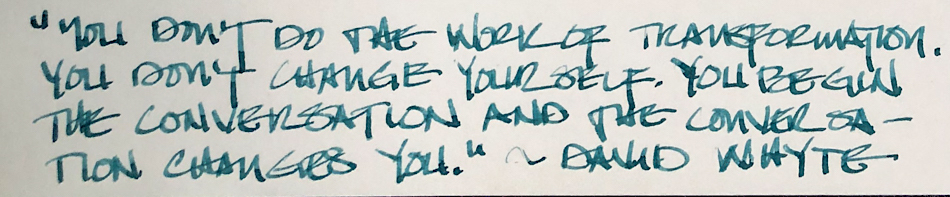 "YOU DON'T DO THE WORK OF TRANSFORMATION.
YOU DON'T CHANGE YOURSELF. YOU BEGIN
THE CONVERSATION AND THE CONVERSA-
TION CHANGES YOU." ~ DAVID WHYTE